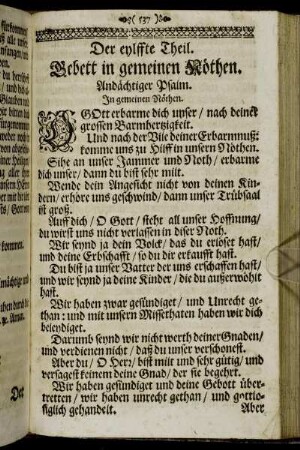 ( 537 )
Der eylffte Theil.
Gebett in gemeinen Nöthen.
Andächtiger Psalm.
In gemeinen Nöthen.
O GOtt erbarme dich unser / nach deiner
grossen Barmhertzigkeit.
Und nach der Vile deiner Erbarmnuß:
komme uns zu Hilff in unsern Nöthen.
Sihe an unser Jammer und Noth / erbarme
dich unser / dann du bist sehr milt.
Wende dein Angesicht nicht von deinen Kin-
dern / erhöre uns geschwind / dann unser Trübsaal
ist groß.
Auff dich / O Gott / steht all unser Hoffnung /
du wirst uns nicht verlassen in diser Noth.
Wir seynd ja dein Volck / das du erlöset hast /
und deine Erbschafft / so du dir erkaufft hast.
Du bist ja unser Vatter der uns erschaffen hast /
und wir seynd ja deine Kinder / die du außerwöhlt
hast.
Wir haben zwar gesündiget / und Unrecht ge-
than: und mit unsern Missethaten haben wir dich
beleydiget.
Darumb seynd wir nicht werth deiner Gnaden /
und verdienen nicht / daß du unser verschonest.
Aber du / O Herz / bist milt und sehr gütig / und
versagest keinem deine Gnad / der sie begehrt.
Wir haben gesündiget und deine Gebott über-
tretten / wir haben unrecht gethan / und gottlo-
siglich gehandelt.
Aber
Der